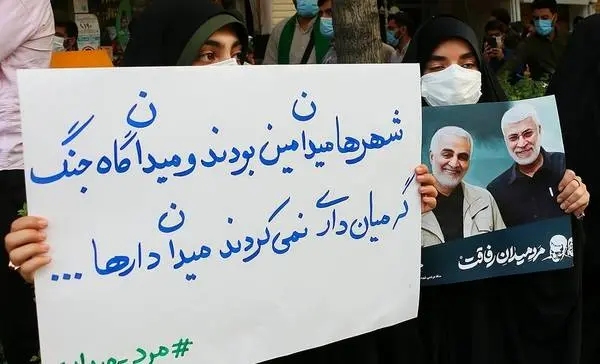 شهرها میدان مین بودند و میدان گاه جنگ
گر میان داری نمی کردند میدان دارها ...
#مرد_میدان
مرد میدان رفاقت